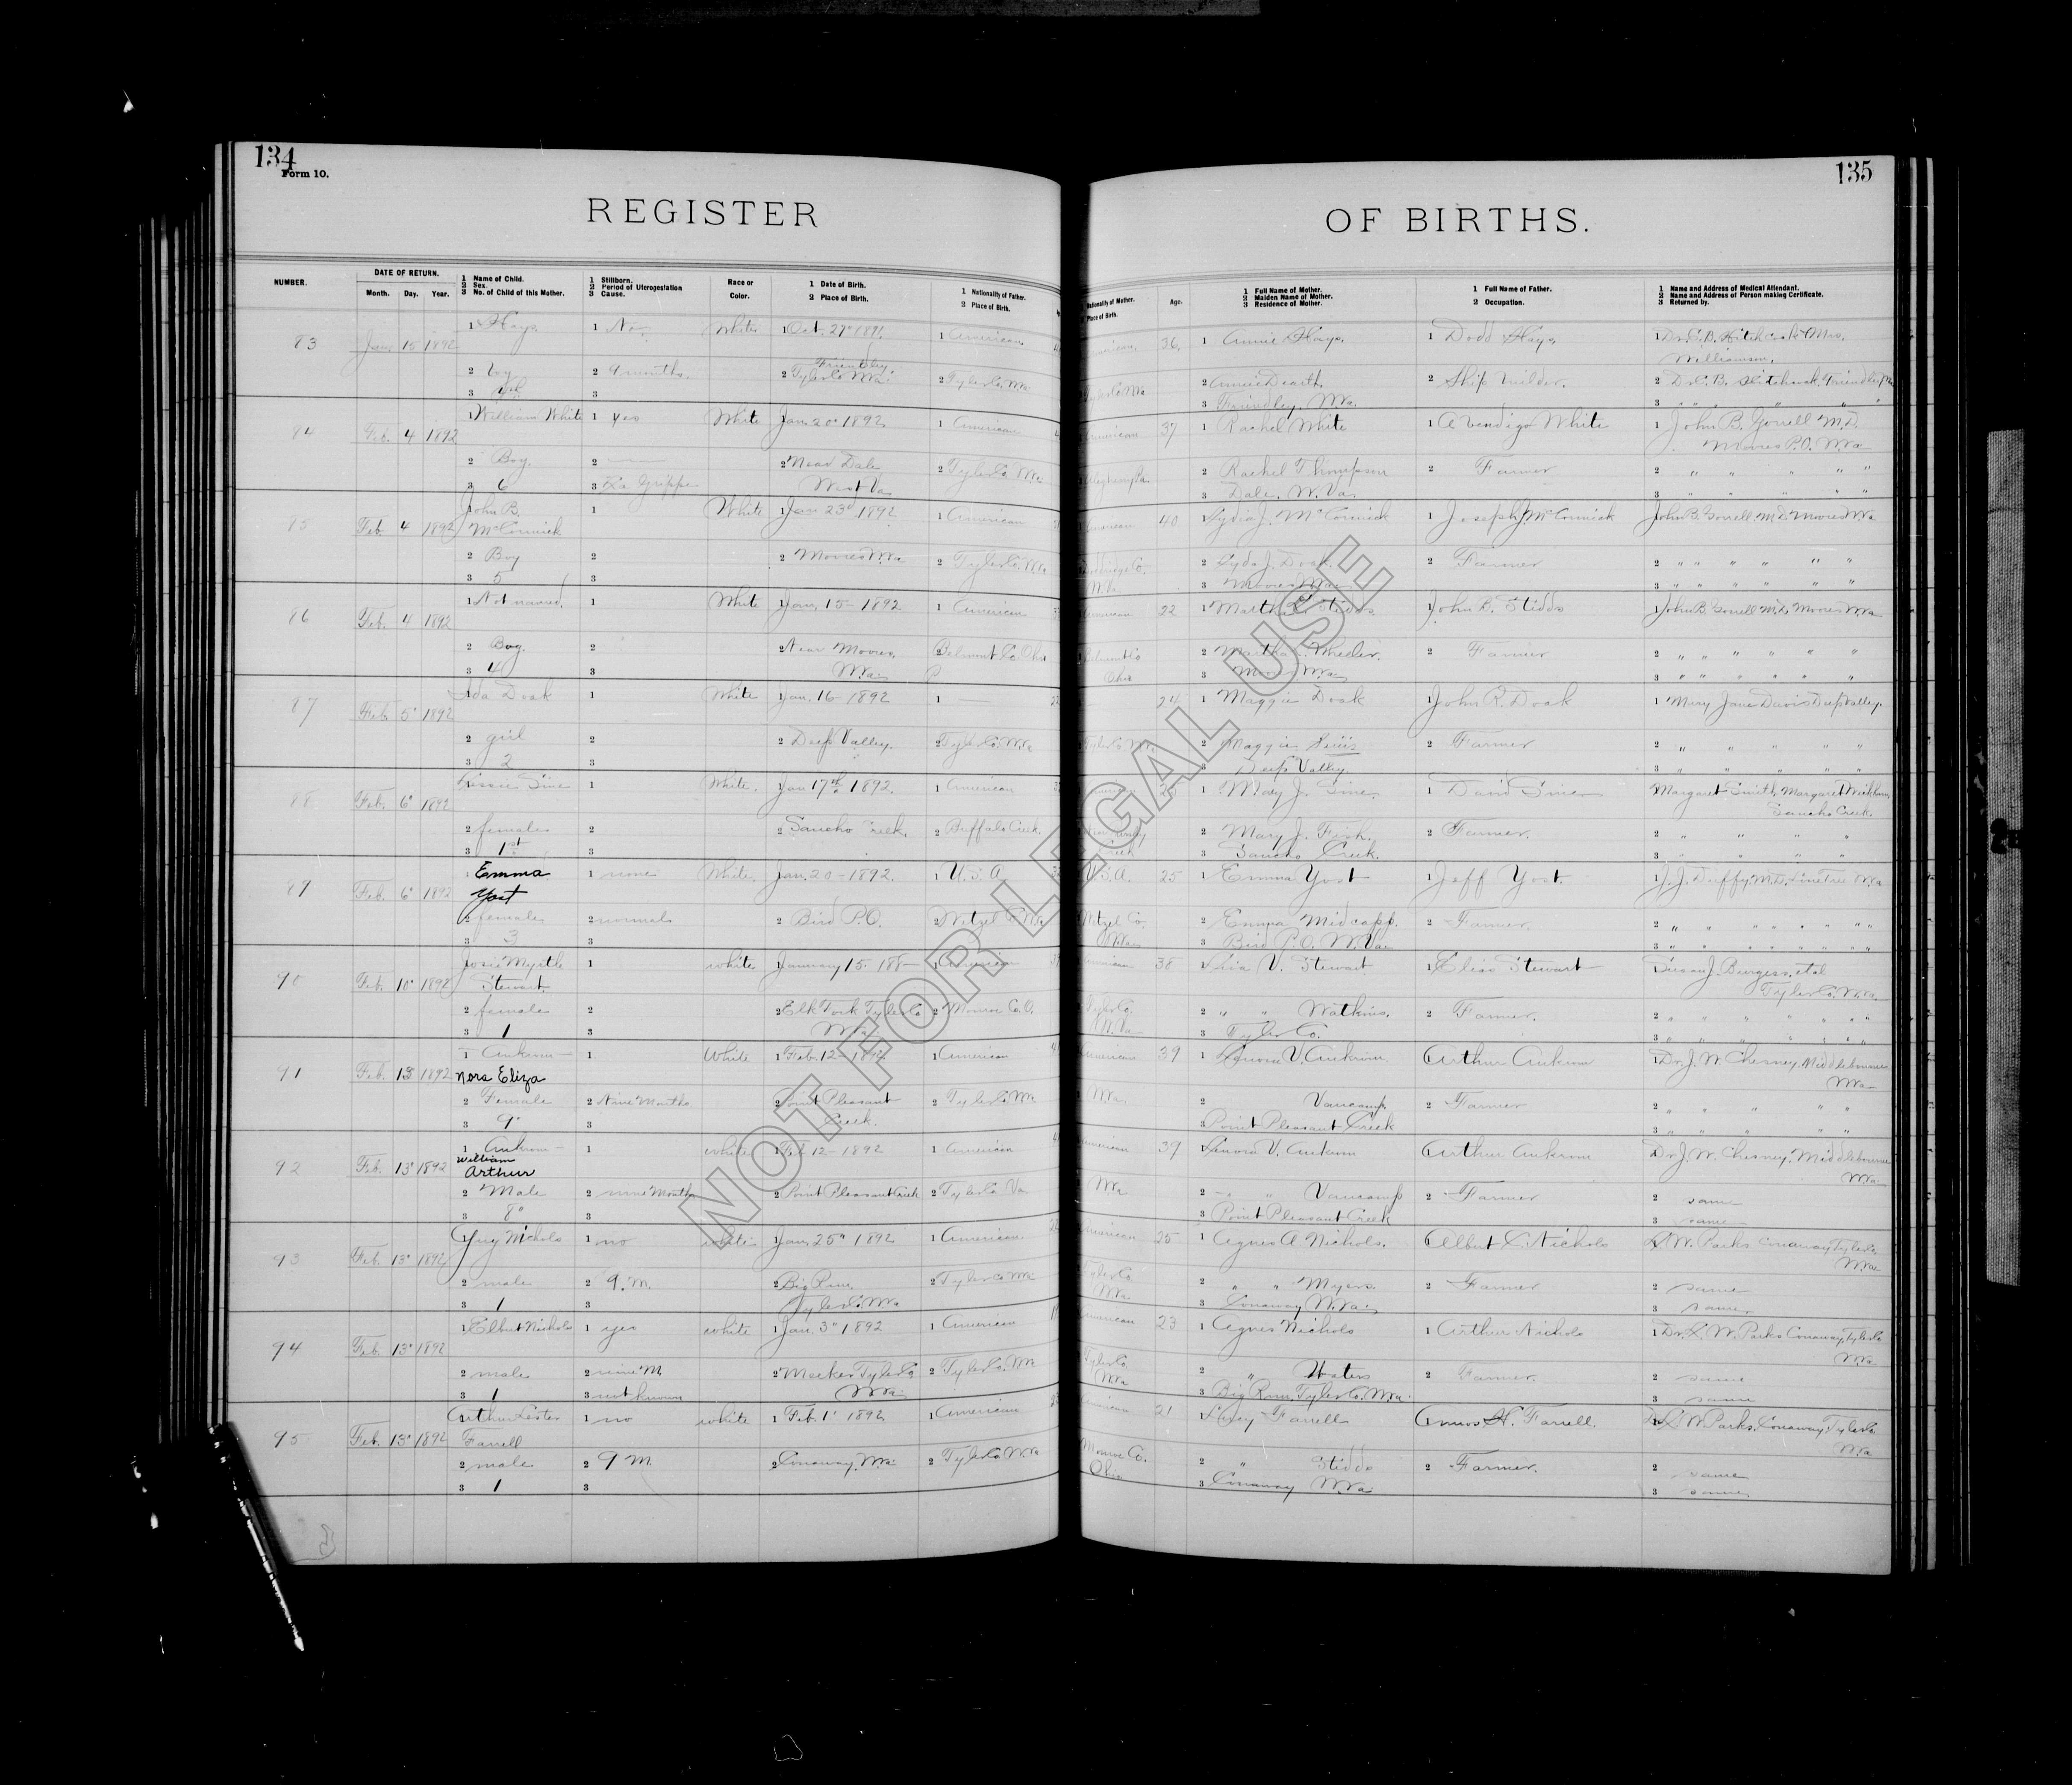 134
Form 10.
REGISTER
NUMBER.
DATE OF RETURN.
Month. Day. Year.
1 Name of Child.
2 Sex.
3 No. of Child of this Mother.
1 Stillborn.
2 Period of Uterogestation
3 Cause.
Race or
Color.
1 Date of Birth.
2 Place of Birth.
1 Nationality of Father.
2 Place of Birth.
83 Jan 15 1892 1 Hays 1 No. White 1 Oct. 27" 1 American
2 boy 2 9 months. 2 Friendley
Tyler Co. W.Va. 2 Tyler Co. W.Va
3 3
84 Feb. 4 1892 1 William White 1 yes White 1 Jan. 20" 1892 1 American
2 Boy. 2 2 Near Dale 2 Tyler Co W.Va
3 6 3 La Grippe West Va
85 Feb. 4 1892 1 John B. 1 White 1 Jan 23d 1892 1 American
McCormick
2 Boy 2 2 Moores W.Va 2 Tyler Co. W.Va
3 5 3
86 Feb. 4 1892 1 Not named. 1 White 1 Jan. 15 - 1892 1 American
2 Boy. 2 2 Near Moores, 2 Belmont Co Ohio
3 4 3 W.Va
87 Feb. 5" 1892 1 Ida Doak 1 White 1 Jan. 16 - 1892 1 —
2 girl 2 2 Deep Valley. 2 Tyler Co. W.Va
3 2 3
88 Feb. 6" 1892 1 Sine 1 White. 1 Jan 17th 1892. 1 American
2 female 2 2 Sancho Creek, 2 Buffalo Creek.
3 1st 3
89 Feb. 6" 1892 1 Emma 1 none White. 1 Jan. 20 - 1892. 1 U.S.A.
Yost
2 female 2 normal 2 Bird P.O. 2 Wetzel Co W.Va
3 3 3
90 Feb. 10" 1892 1 Josie Myrtle 1 white 1 January 15. 188- 1 American
Stewart.
2 female 2 2 Elk Fork Tyler Co 2 Monroe Co. O.
3 1 3 W.Va.
91 Feb. 13 1892 1 Ankrom 1 White 1 Feb. 12 - 1892 1 American
Nora Eliza
2 Female 2 Nine Months 2 Point Pleasant 2 Tyler Co W.Va
3 9" 3 Creek.
92 Feb. 13" 1892 1 Ankrom 1 white 1 Feb 12 - 1892 1 American
William
Arthur
2 Male 2 nine Months 2 Point Pleasant Creek 2 Tyler Co Va
3 8" 3
93 Feb. 13" 1892 1 Guy Nichols 1 no white 1 Jan. 25" 1892 1 American
2 male 2 9. M. 2 Big Run. 2 Tyler Co W.Va
3 1 3 Tyler Co. W.Va
94 Feb. 13" 1892 1 Elbert Nichols 1 yes white 1 Jan. 3" 1892 1 American
2 male 2 nine M. 2 Meeker Tyler Co 2 Tyler Co. W.Va
3 1 3 not known W.Va.
95 Feb. 13" 1892 1 Arthur Lester 1 no white 1 Feb. 1" 1892 1 American
Farrell
2 male 2 9 M. 2 Conaway, W.Va. 2 Tyler Co W.Va
3 1 3
135
OF BIRTHS.
Nationality of Mother.
Place of Birth.
Age.
1 Full Name of Mother.
2 Maiden Name of Mother.
3 Residence of Mother.
1 Full Name of Father.
2 Occupation.
1 Name and Address of Medical Attendant.
2 Name and Address of Person making Certificate.
3 Returned by.
American 36 1 Annie Hays. 1 Dodd Hays 1 Dr. C. B. Hitchcock & Mrs.
Williamson.
Tyler Co. W.Va 2 Annie Death. 2 Ship builder. 2 Dr. C. B. Hitchcock, Friendley
3 Friendley, W.Va. 3 " " " " "
American 37 1 Rachel White 1 Abendigo White 1 John B. Gorrell M.D.
Moores P.O. W.Va
2 Rachel Thompson 2 Farmer 2 " " " " "
3 Dale, W. Va. 3 " " " "
American 40 1 Lydia J. McCormick 1 Joseph J. McCormick 1 John B. Gorrell M.D Moores W.Va
Doddridge Co. 2 Lyda J. Doak 2 Farmer 2 " " " " " "
W.Va 3 Moores W.Va 3 " " " " " "
American 22 1 Martha Stidds 1 John B. Stidds 1 John B Gorrell M.D. Moores W.Va
Belmont Co 2 Martha Wheeler. 2 Farmer 2 " " " " " "
Ohio 3 Moores W.Va 3 " " " " " "
24 1 Maggie Doak 1 John R. Doak 1 Mary Jane Davis Deep Valley.
Tyler Co W. 2 Maggie 2 Farmer 2 " " " "
3 Deep Valley 3 " " " "
1 Mary J. Sine 1 David Sine 1 Margaret Smith, Margaret
Sancho Creek.
2 Mary J. Fish. 2 Farmer. 2 " " " "
Creek 3 Sancho Creek. 3 " " " "
U.S.A. 25 1 Emma Yost 1 Jeff Yost. 1 J. J. Duffy, M.D. Lone Tree W.Va
Wetzel Co 2 Emma Midcapp. 2 Farmer. 2 " " " " " "
W.Va 3 Bird P.O. W. Va 3 " " " " " "
American 38 1 V. Stewart 1 Elias Stewart 1 Susan J. Burgess, et al
Tyler Co. W.Va.
Tyler Co. 2 " " Watkins. 2 Farmer. 2 " " " " "
W.Va 3 Tyler Co. 3 " " " " "
American 39 1 V. Ankrom 1 Arthur Ankrom 1 Dr. J. W. Chesney, Middlebourne
W.Va
W.Va. 2 Vancamp 2 Farmer 2 " " " " "
3 Point Pleasant Creek 3 " " " " "
American 39 1 V. Ankrom 1 Arthur Ankrom 1 Dr. J. W. Chesney, Middlebourne
W.Va
W.Va 2 " " Vancamp 2 Farmer 2 same
3 Point Pleasant Creek 3 same
American 25 1 Agnes A Nichols. 1 Albert Nichols 1 L. W. Parks Conaway Tyler Co
W.Va
Tyler Co 2 " " Myers 2 Farmer 2 same
W.Va 3 Conaway W.Va. 3 same
American 23 1 Agnes Nichols 1 Arthur Nichols 1 Dr. L. W. Parks Conaway, Tyler Co
W.Va
Tyler Co. 2 " Waters 2 Farmer 2 same
W.Va 3 Big Run, Tyler Co. W.Va. 3 same
American 21 1 Farrell 1 Amos H. Farrell. 1 Dr. L. W. Parks, Conaway, Tyler Co
W.Va
Monroe Co. 2 " Stidds 2 Farmer. 2 same
Ohio 3 Conaway W.Va 3 same
NOT FOR LEGAL USE